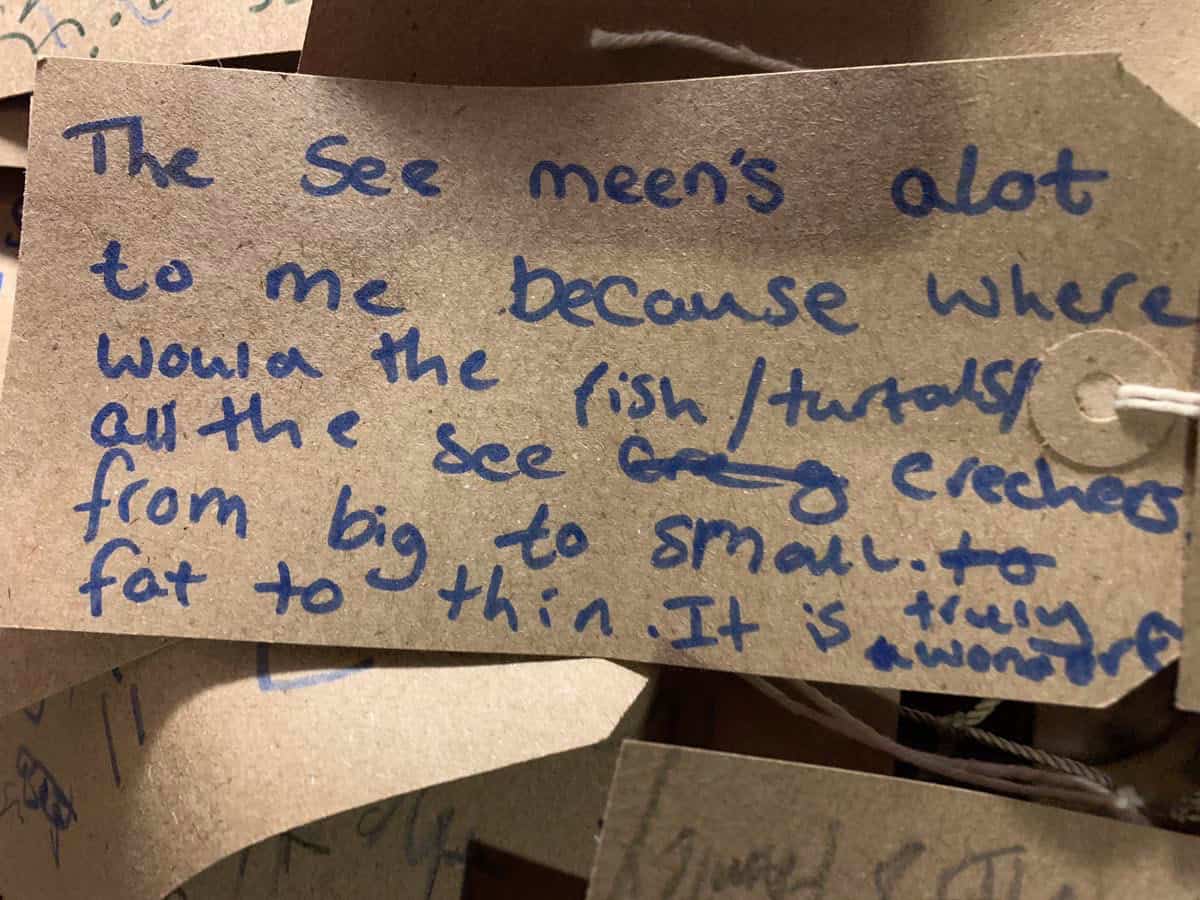 The See meen's alot
to me because where
would the fish/turtals/
all the see crechers
from big to small. to
fat to thin. It is truly
a wonderf